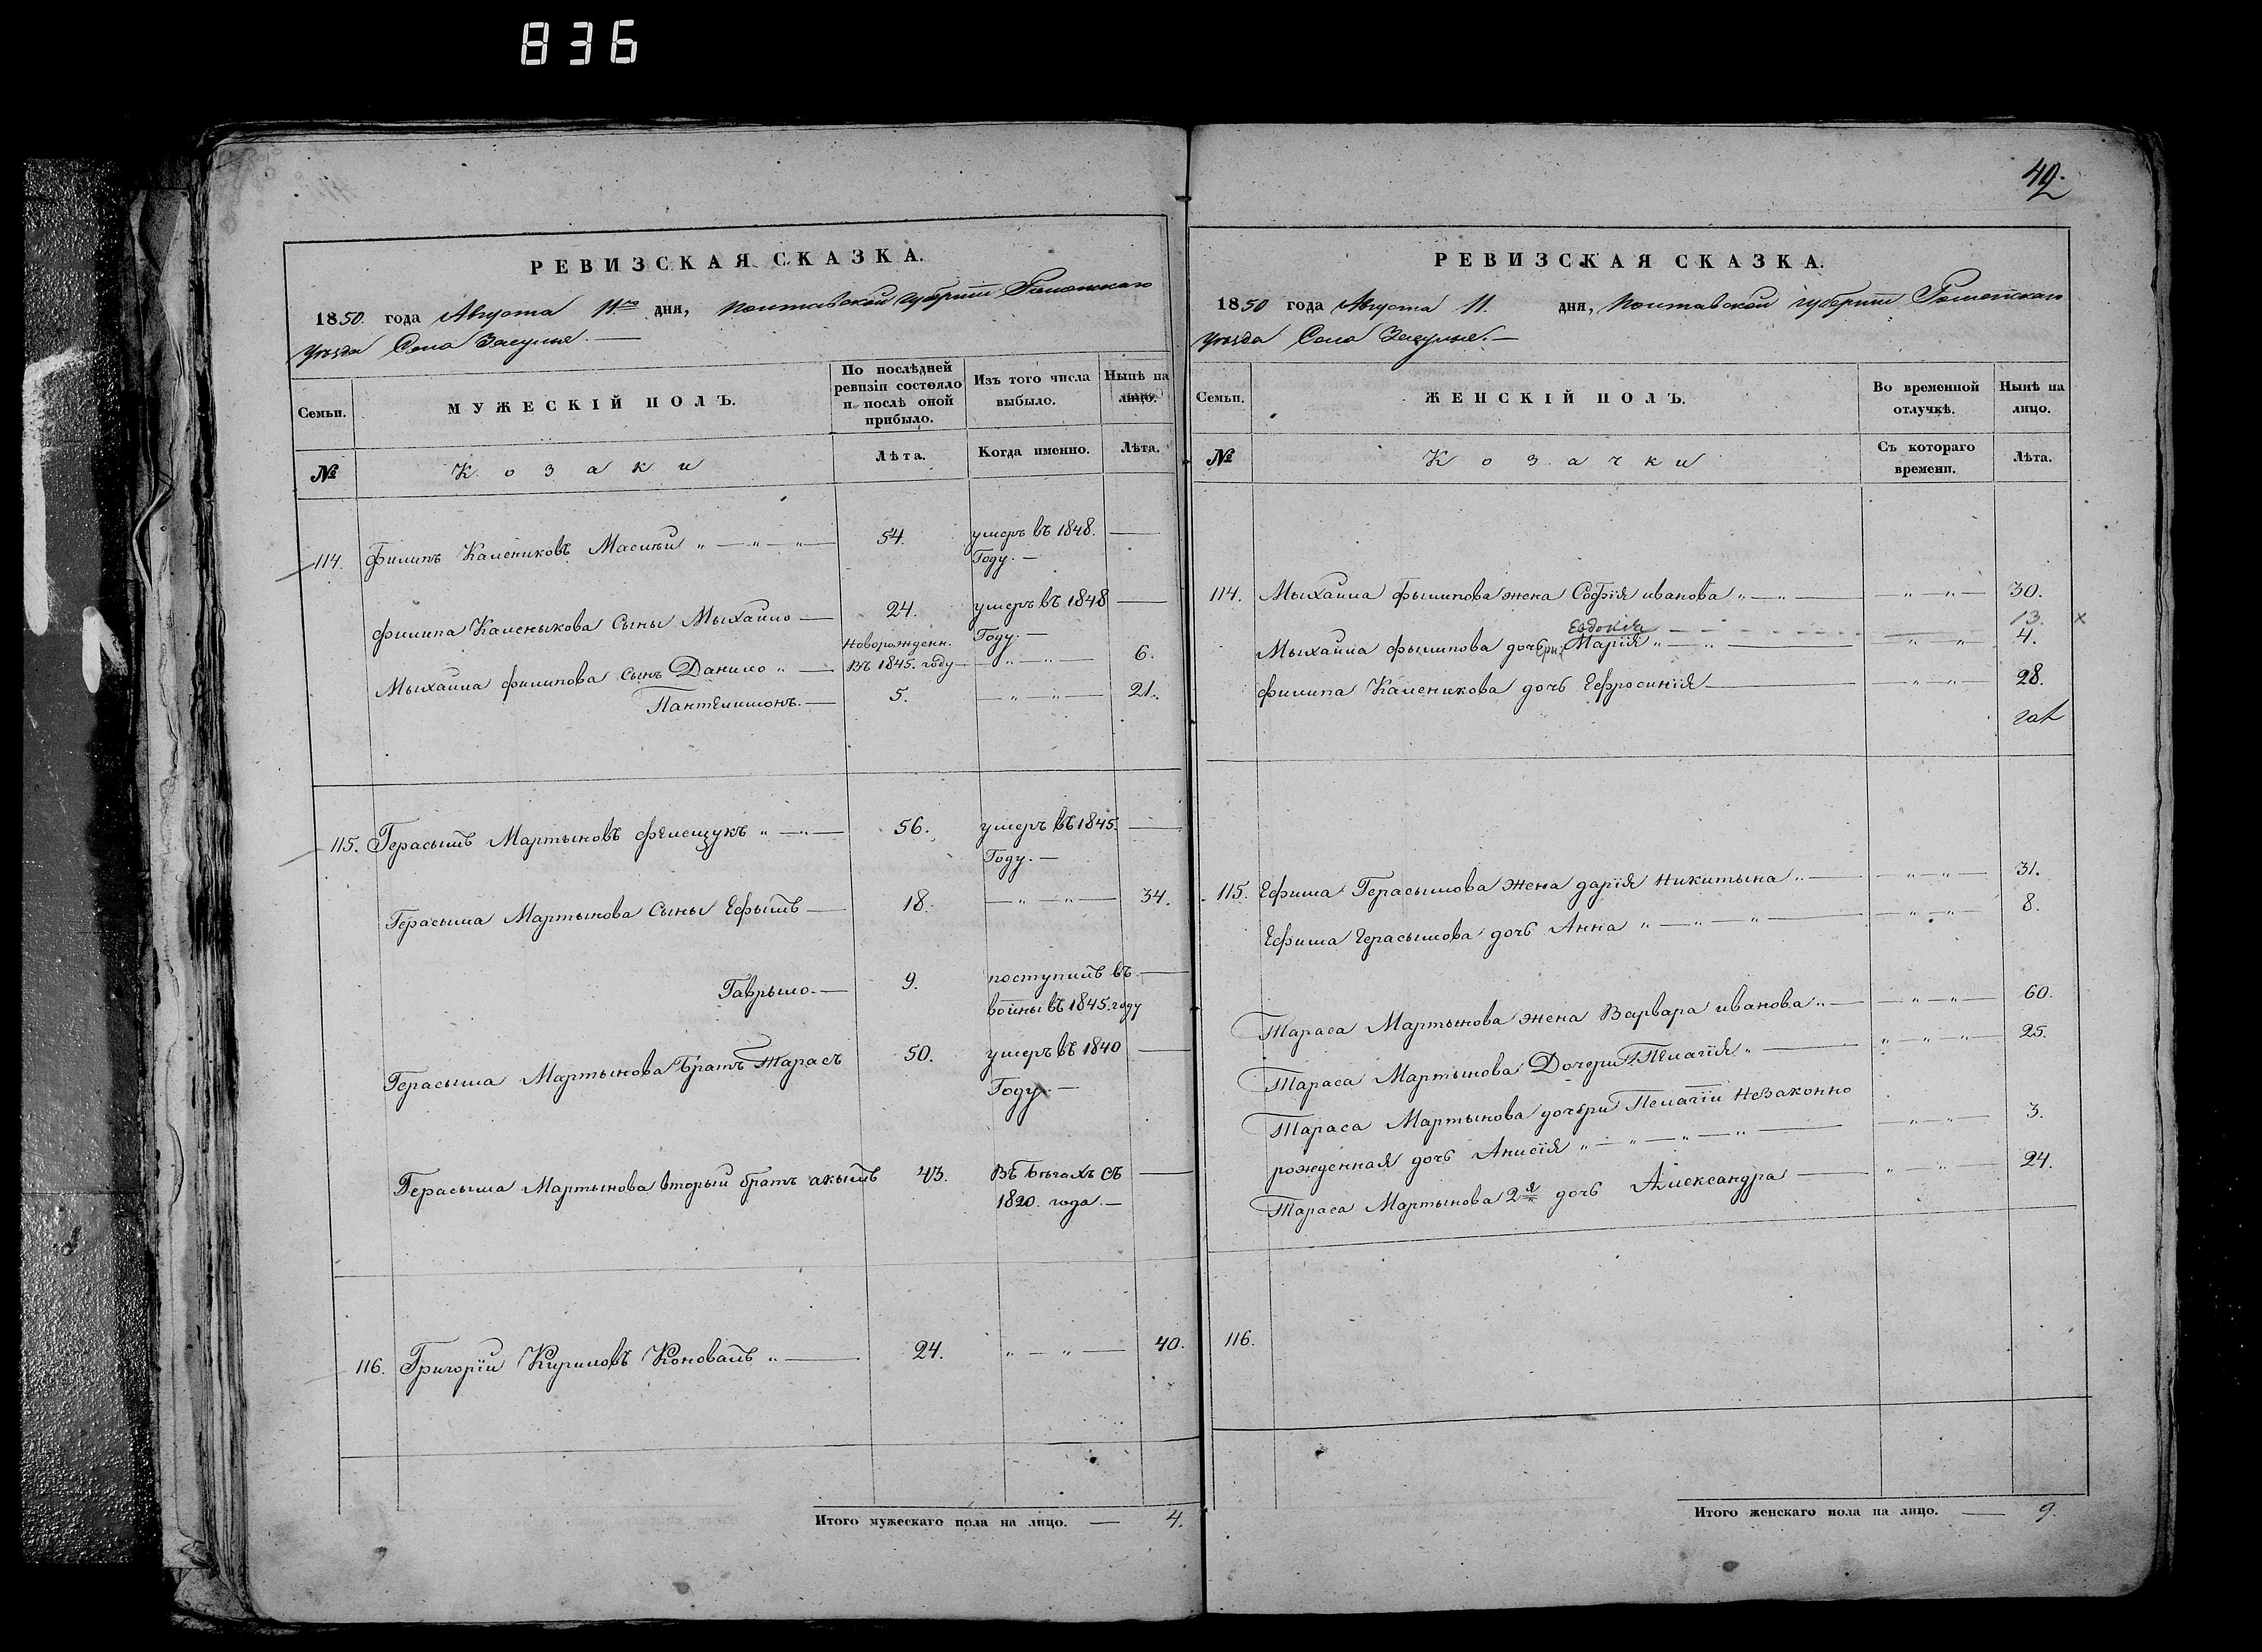 836
РЕВИЗСКАЯ СКАЗКА.
1850. года Августа 11го дня, Полтавской губернїи Роменскаго
уѣзда Села Засулья. —
Семьи.
МУЖЕСКІЙ ПОЛЪ.
По послѣдней ревизіи состояло и послѣ оной прибыло.
Изъ того числа выбыло.
Нынѣ на лицо.
№
Козаки
Лѣта.
Когда именно.
Лѣта.
114. Филипъ Калениковъ " — " — " — 54. умеръ въ 1848. —
Году. —
Филипа Каленыкова Сыны Мыхайло — 24. умеръ въ 1848 —
Году. —
Новорожденн.
Мыхайла Филипова Сынъ Данило " — Въ 1845. году — " — " — 6.
Пантелимонъ. — 5. — " — " — 21.
115. Герасымъ Мартыновъ Фелещукъ " — " — 56. умеръ въ 1845. —
Году. —
Герасыма Мартынова Сыны Ефымъ — 18. — " — " — 34.
Гаврыло. — 9. поступилъ въ —
войны въ 1845. году
Герасыма Мартынова Братъ Тарасъ 50. умеръ въ 1840 —
Году. —
Герасыма Мартынова вторый братъ акымъ 43. Въ бѣгахъ съ —
1820. года. —
116. Григорїй Кириловъ Коновалъ " — 24. " — " — 40.
Итого мужескаго пола на лицо. — 4.
42.
РЕВИЗСКАЯ СКАЗКА.
1850 года Августа 11. дня, Полтавской губернїи Роменскаго
уѣзда Села Засулья. —
Семьи.
ЖЕНСКІЙ ПОЛЪ.
Во временной отлучкѣ.
Нынѣ на лицо.
№
Козачки
Съ котораго времени.
Лѣта.
114. Мыхайла Фылипова жена Софїя иванова " — " — " — " — 30.
Евдокія 13. х
Мыхайла Фылипова дочери Марїя " — " — " — " 4.
Филипа Каленикова дочь Ефросинїя — " — " — 28.
115. Ефима Герасымова жена дарїя никитына " — — " — " — 31.
Ефима герасымова дочь Анна " — " — " — — " — " — 8.
Тараса Мартынова жена Варвара иванова " — — " — " — 60.
Тараса Мартынова Дочери Пелагїя " — " — " — " — 25.
Тараса Мартынова дочери Пелагїи незаконно
рожденная дочь Анисїя " — " — " — " — " — " — 3.
Тараса Мартынова 2я дочь Александра — " — " — 24.
116.
Итого женскаго пола на лицо. — 9.